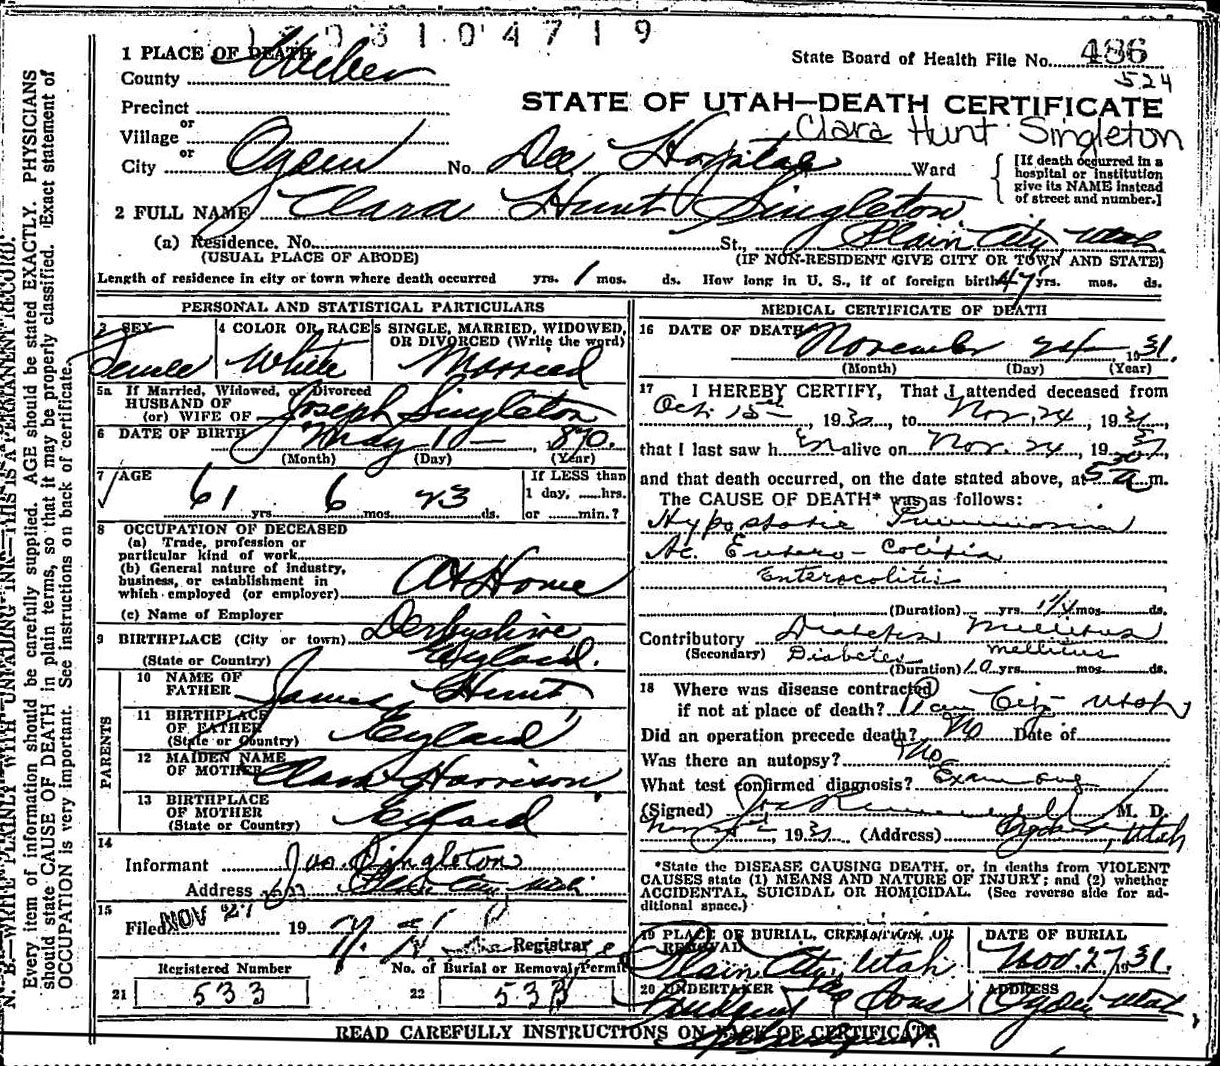 1 7 0 3 1 0 4 7 1 9
1 PLACE OF DEATH
State Board of Health File No. 486
County Weber
524
STATE OF UTAH—DEATH CERTIFICATE
Precinct
or
Clara Hunt Singleton
Village
or
City Ogden No. Dee Hospital Ward
[If death occurred in a
hospital or institution
give its NAME instead
of street and number.]
2 FULL NAME Clara Hunt Singleton
(a) Residence. No. St., Plain City, Utah
(USUAL PLACE OF ABODE) (IF NON-RESIDENT GIVE CITY OR TOWN AND STATE)
Length of residence in city or town where death occurred yrs. 1 mos. ds. How long in U. S., if of foreign birth 47 yrs. mos. ds.
PERSONAL AND STATISTICAL PARTICULARS
3 SEX 4 COLOR OR RACE 5 SINGLE, MARRIED, WIDOWED,
OR DIVORCED (Write the word)
Female White Married
5a If Married, Widowed, or Divorced
HUSBAND OF
(or) WIFE OF Joseph Singleton
6 DATE OF BIRTH May 1 — , 1870.
(Month) (Day) (Year)
7 AGE If LESS than
61 yrs. 6 mos. 23 ds. 1 day, ......hrs.
or ......min.?
8 OCCUPATION OF DECEASED
(a) Trade, profession or
particular kind of work
(b) General nature of industry,
business, or establishment in
which employed (or employer) At Home
(c) Name of Employer
9 BIRTHPLACE (City or town) Derbyshire
(State or Country) England.
PARENTS
10 NAME OF
FATHER James Hunt
11 BIRTHPLACE
OF FATHER
(State or Country) England
12 MAIDEN NAME
OF MOTHER Harrison
13 BIRTHPLACE
OF MOTHER
(State or Country) England
14
Informant Jos. Singleton
Address Plain City Utah
15
Filed NOV 27 19
Registrar
Registered Number No. of Burial or Removal Permit
21 533 22 533
MEDICAL CERTIFICATE OF DEATH
16 DATE OF DEATH November 24 1931.
(Month) (Day) (Year)
17 I HEREBY CERTIFY, That I attended deceased from
Oct. 15th, 1931, to Nov. 24, 1931,
that I last saw her alive on Nov. 24, 1931
and that death occurred, on the date stated above, at 5 a m.
The CAUSE OF DEATH* was as follows:
Hypostatic Pneumonia
Ac. Entero-Colitis
Enterocolitis
(Duration) yrs. 1 1/4 mos. ds.
Contributory Diabetes Mellitus
(Secondary) Diabetes mellitus
(Duration) 10 yrs. mos. ds.
18 Where was disease contracted
if not at place of death? Plain City Utah
Did an operation precede death? No Date of
Was there an autopsy? No
What test confirmed diagnosis?
(Signed) M. D.
1931 (Address) Ogden, Utah
*State the DISEASE CAUSING DEATH, or, in deaths from VIOLENT
CAUSES state (1) MEANS AND NATURE OF INJURY; and (2) whether
ACCIDENTAL, SUICIDAL OR HOMICIDAL. (See reverse side for ad-
ditional space.)
19 PLACE OF BURIAL, CREMATION, OR
REMOVAL DATE OF BURIAL
Plain City, Utah Nov. 27 1931.
20 UNDERTAKER ADDRESS
& Sons Ogden Utah
READ CAREFULLY INSTRUCTIONS ON BACK OF CERTIFICATE
N. B.—WRITE PLAINLY WITH UNFADING INK—THIS IS A PERMANENT RECORD.
Every item of information should be carefully supplied. AGE should be stated EXACTLY. PHYSICIANS
should state CAUSE OF DEATH in plain terms, so that it may be properly classified. Exact statement of
OCCUPATION is very important. See instructions on back of certificate.